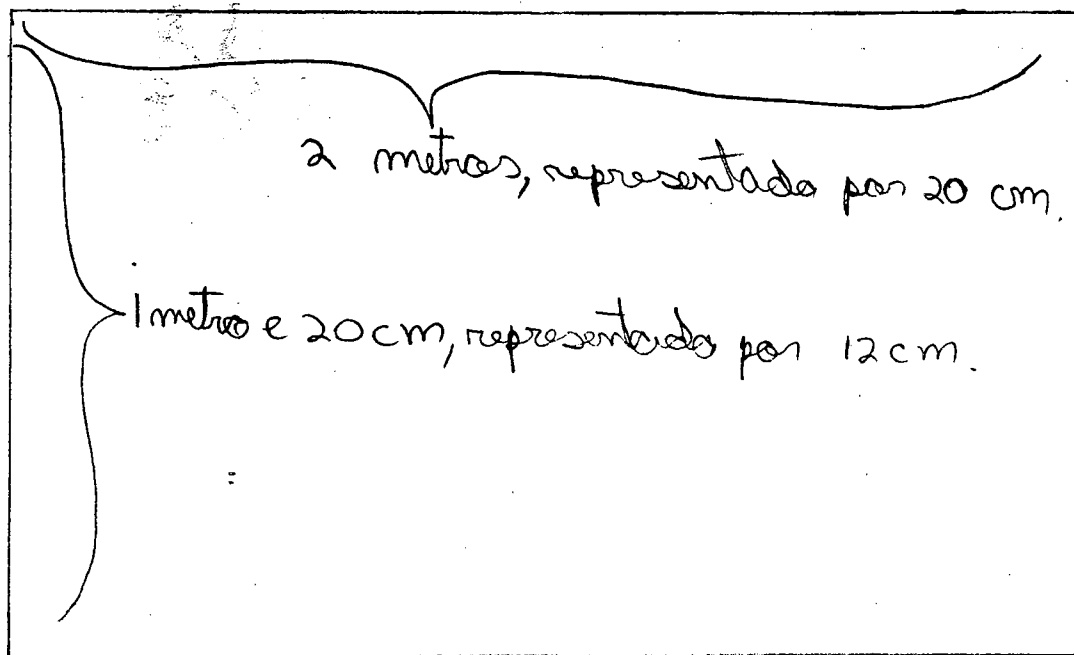 2 metros, representado por 20 cm.
1 metro e 20 cm, representado por 12 cm.